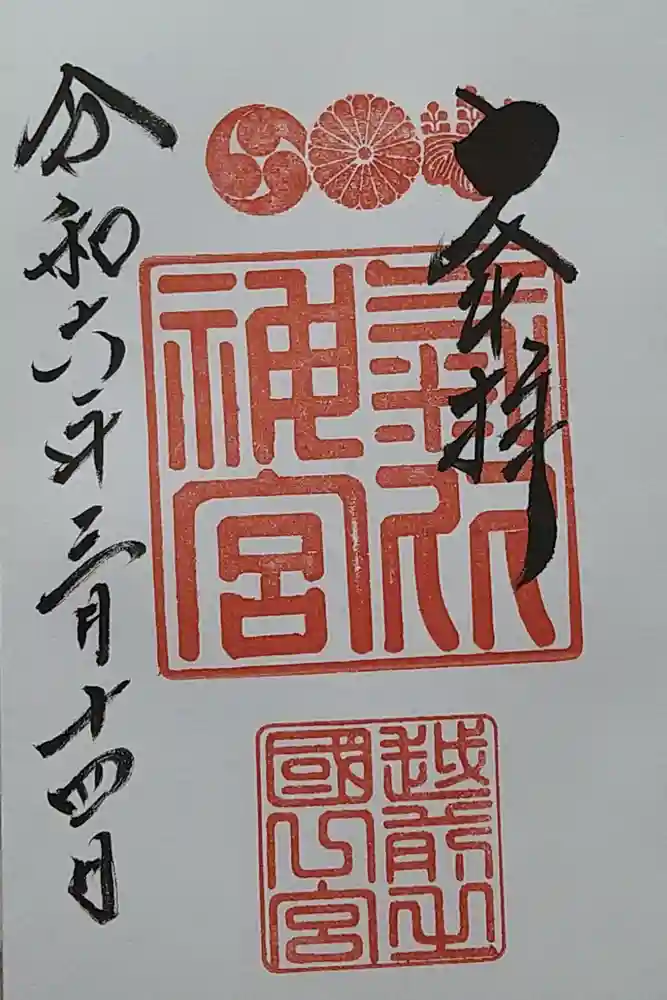 奉拝
氣比
神宮
越前
國宮
令和六年三月十四日